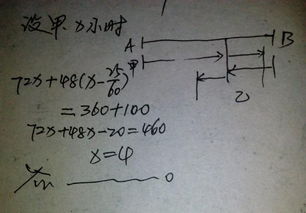 设甲x小时
A B
甲
乙
72x+48(x-25/60)
=360+100
72x+48x-20=460
x=4
答